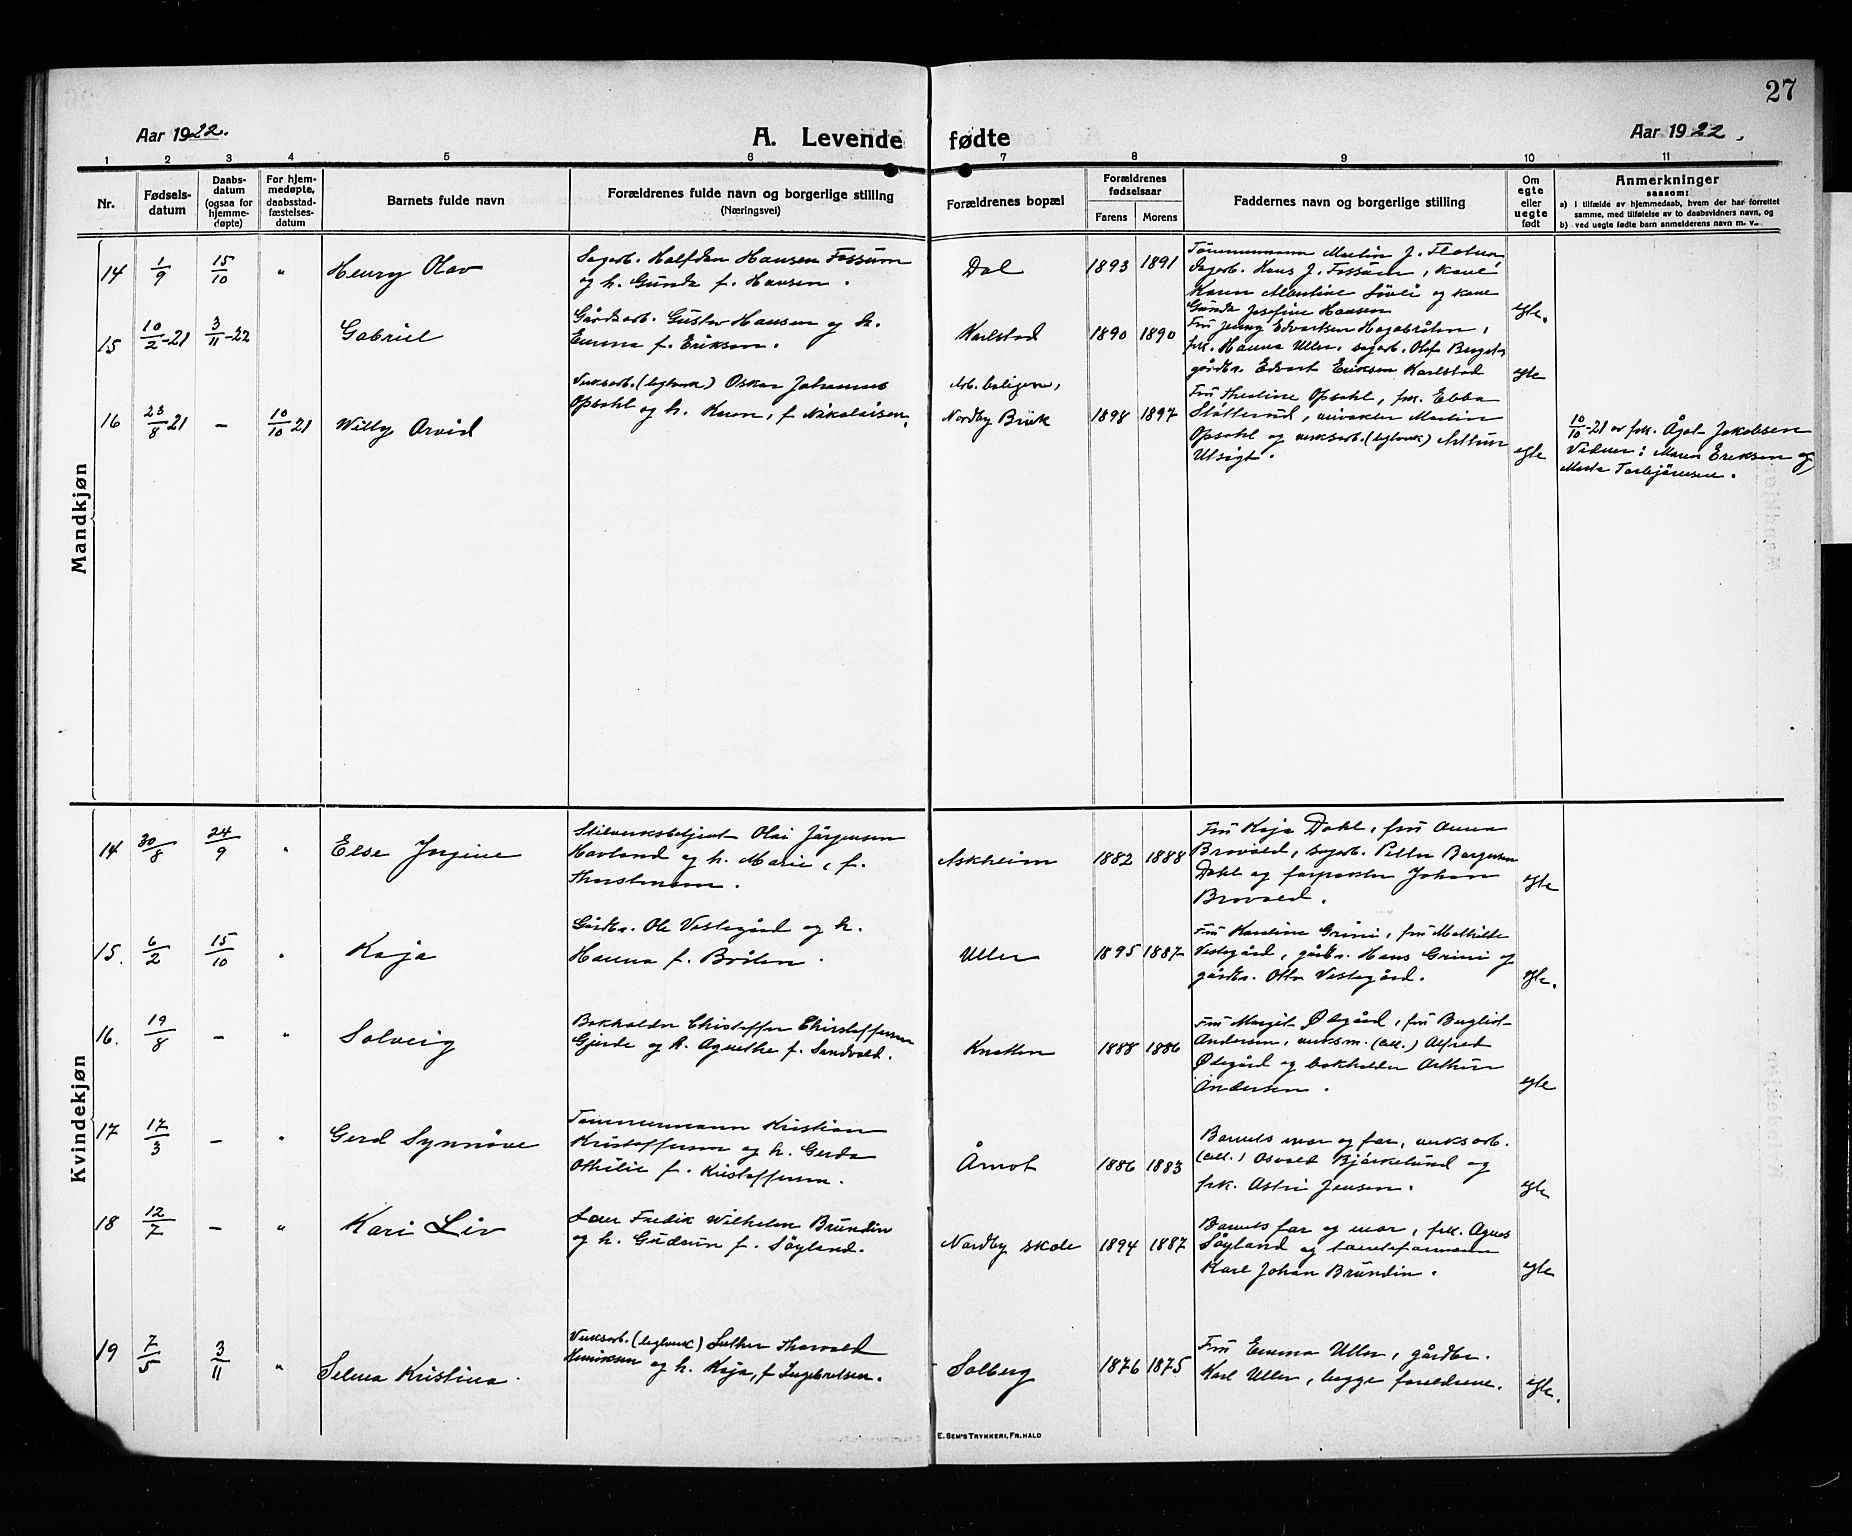 27
Aar 1922.
A. Levende fødte
Aar 1922.
1 2 3 4 5 6 7 8 9 10 11
Nr.
Fødsels-
datum
Daabs-
datum
(ogsaa for
hjemme-
døpte)
For hjem-
medøpte,
daabsstad-
fæstelses-
datum
Barnets fulde navn
Forældrenes fulde navn og borgerlige stilling
(Næringsvei)
Forældrenes bopæl
Forældrenes
fødselsaar
Farens Morens
Faddernes navn og borgerlige stilling
Om
egte
eller
uegte
født
Anmerkninger
saasom:
a) i tilfælde av hjemmedaab, hvem der har forrettet
samme, med tilføielse av to daabsvidners navn, og
b) ved uegte fødte barn anmelderens navn m. v.
Mandkjøn
14 1/9 15/10 " Henry Olav
Sagarb. Halfdan Hansen Fossum
og h. Gunda f. Hansen.
Dal 1893 1891
Tømmermann Martin J.
Sagarb. Hans J. Fossum, kone
Karen Albertine og kone
Gunda Josefine Hansen
egte.
15 10/2-21 3/11-22 Gabriel
Gårdsarb. Gustav Hansen og h.
Emma f. Eriksen.
Karlstad 1890 1890
Fru Jenny Edvartsen Hagabråten,
frk. Hanna Uller, sagarb. Olof
gårdbr. Edvart Eriksen Karlstad
egte
16 23/8 21 - 10/10 21 Willy Arvid
Verksarb. (teglverk) Oskar Johannes
Opsahl og h. Karen, f. Nikolaisen.
Arb. boligene,
Nordby Bruk 1898 1897
Fru Thealine Opsahl, frk. Ebba
Slåtterud, Martin
Opsahl og verksarb. (teglverk) Arthur
Utsigt.
egte
10/10-21 av frk. Ågot Jakobsen
Vidner: Maren Eriksen og
Marta Torbjørnsen.
Kvindekjøn
14 30/8 24/9 " Else Jorgine
Olai Jørgensen
Havland og h. Marie, f.
Askheim 1882 1888
Fru Kaja Dahl, fru Anna
Brovold, sagarb. Petter Borgersen
Dahl og forpakter Johan
Brovold.
egte
15. 6/2 15/10 " Kaja
Gårdbr. Ole Vestegård og h.
Hanna f. Bråten.
Uller 1895 1887
Fru Karoline Grini, fru Mathilde
Vestegård, gårdbr. Hans Grini og
gårdbr. Otto Vestegård.
egte.
16. 19/8 - " Solveig
Bokholder Christoffer Christoffersen
Gjerde og h. Agnethe f. Sandvold.
Knatten 1888 1886
Fru Margit Ødegård, fru Bergliot
Andersen, verksm. (cell.) Alfred
Ødegård og bokholder Arthur
Andersen.
egte
17 17/3 - " Gerd Synnøve
Tømmermann Kristian
Kristoffersen og h. Gerda
Othilie f. Kristoffersen.
Åmot 1886 1883
Barnets mor og far, verksarb.
(cell.) Osvald Bjørkelund og
frk. Astri Jensen.
egte
18 12/7 - " Kari Liv
Lærer Fredik Wilhelm Brundin
og h. Gudrun f. Søyland.
Nordby skole 1894 1887
Barnets far og mor, frk. Agnes
Søyland og tomteformann
Karl Johan Brundin.
egte
19 7/5 3/11 " Selma Kristina.
Verksarb. (teglverk) Luther Thorvald
Henriksen og h. Kaja, f. Ingebretsen.
Solberg 1876 1875
Fru Emma Uller, gårdbr.
Karl Uller, begge foreldrene.
egte.
E. SEM'S TRYKKERI, FR.HALD